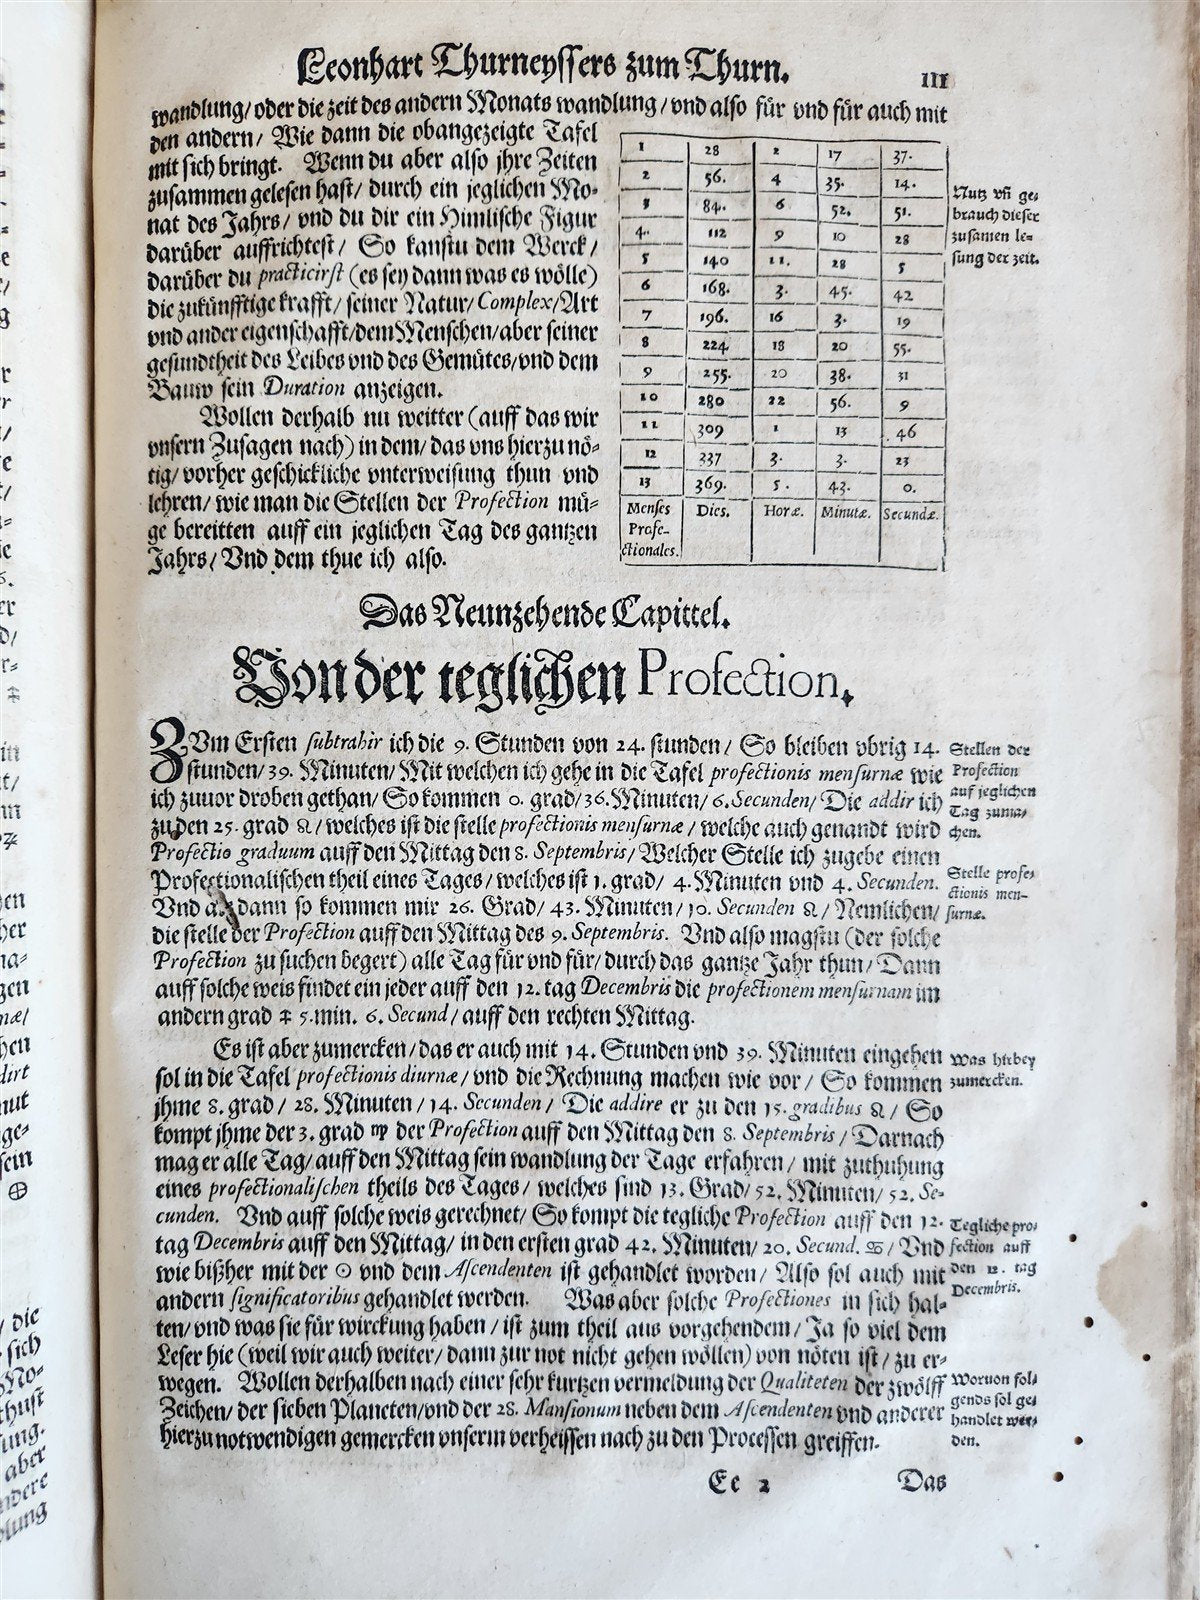 Leonhart Thurneyssers zum Thurn.
III
wandlung/ oder die zeit des andern Monats wandlung/ vnd also für vnd für auch mit
den andern/ Wie dann die obangezeigte Tafel
mit sich bringt. Wenn du aber also jhre Zeiten
zusammen gelesen hast/ durch ein jeglichen Mo-
nat des Jahrs/ vnd du dir ein Himlische Figur
darüber auffrichtest/ So kanstu dem Werck/
darüber du practicirst (es sey dann was es wölle)
die zukünfftige krafft/ seiner Natur/ Complex/ Art
vnd ander eigenschafft/ dem Menschen/ aber seiner
gesundtheit des Leibes vnd des Gemütes/ vnd dem
Bauw sein Duration anzeigen.
Wollen derhalb nu weitter (auff das wir
vnsern Zusagen nach) in dem/ das vns hierzu nö-
tig/ vorher geschickliche vnterweisung thun vnd
lehren/ wie man die Stellen der Profection mü-
ge bereitten auff ein jeglichen Tag des gantzen
Jahrs/ Vnd dem thue ich also.
1 28 2 17 37.
2 56. 4 35. 14.
3 84. 6 52. 51.
4. 112 9 10 28
5 140 11. 28 5
6 168. 3. 45. 42
7 196. 16 3. 19
8 224 18 20 55.
9 255. 20 38. 31
10 280 22 56. 9
11 309 1 13 46
12 337 3. 3. 23
13 369. 5. 43. 0.
Menses Dies. Horæ. Minutæ. Secundæ.
Profe-
ctionales.
Nutz vñ ge-
brauch dieser
zusamen le-
sung der zeit.
Das Neunzehende Capittel.
Von der teglichen Profection.
ZVm Ersten subtrahir ich die 9. Stunden von 24. stunden/ So bleiben vbrig 14.
stunden/ 39. Minuten/ Mit welchen ich gehe in die Tafel profectionis mensurnæ wie
ich zuuor droben gethan/ So kommen 0. grad/ 36. Minuten/ 6. Secunden/ Die addir ich
zu den 25. grad ♌/ welches ist die stelle profectionis mensurnæ/ welche auch genandt wird
Profectio graduum auff den Mittag den 8. Septembris/ Welcher Stelle ich zugebe einen
Profectionalischen theil eines Tages/ welches ist 1. grad/ 4. Minuten vnd 4. Secunden.
Vnd dann so kommen mir 26. Grad/ 43. Minuten/ 10. Secunden ♌/ Nemlichen/
die stelle der Profection auff den Mittag des 9. Septembris. Vnd also magstu (der solche
Profection zu suchen begert) alle Tag für vnd für/ durch das gantze Jahr thun/ Dann
auff solche weis findet ein jeder auff den 12. tag Decembris die profectionem mensurnam im
andern grad 5. min. 6. Secund/ auff den rechten Mittag.
Stellen der
Profection
auf jeglichen
Tag zuma-
chen.
Stelle profe-
ctionis men-
surnæ.
Es ist aber zumercken/ das er auch mit 14. Stunden vnd 39. Minuten eingehen
sol in die Tafel profectionis diurnæ/ vnd die Rechnung machen wie vor/ So kommen
jhme 8. grad/ 28. Minuten/ 14. Secunden/ Die addire er zu den 15. gradibus ♌/ So
kompt jhme der 3. grad ♍ der Profection auff den Mittag den 8. Septembris/ Darnach
mag er alle Tag/ auff den Mittag sein wandlung der Tage erfahren/ mit zuthuhung
eines profectionalischen theils des Tages/ welches sind 13. Grad/ 52. Minuten/ 52. Se-
cunden. Vnd auff solche weis gerechnet/ So kompt die tegliche Profection auff den 12.
tag Decembris auff den Mittag/ in den ersten grad 42. Minuten/ 20. Secund. ♋/ Vnd
wie bißher mit der ☉ vnd dem Ascendenten ist gehandlet worden/ Also sol auch mit
andern significatoribus gehandlet werden. Was aber solche Profectiones in sich hal-
ten/ vnd was sie für wirckung haben/ ist zum theil aus vorgehendem/ Ja so viel dem
Leser hie (weil wir auch weiter/ dann zur not nicht gehen wöllen) von nöten ist/ zu er-
wegen. Wollen derhalben nach einer sehr kurtzen vermeldung der Qualiteten der zwölff
Zeichen/ der sieben Planeten/ vnd der 28. Mansionum neben dem Ascendenten vnd anderer
hierzu notwendigen gemercken vnserm verheissen nach zu den Processen greiffen.
Was hirbey
zumercken.
Tegliche pro-
fection auff
den 12. tag
Decembris.
Woruon fol-
gends sol ge-
handlet wer-
den.
Ee 2 Das